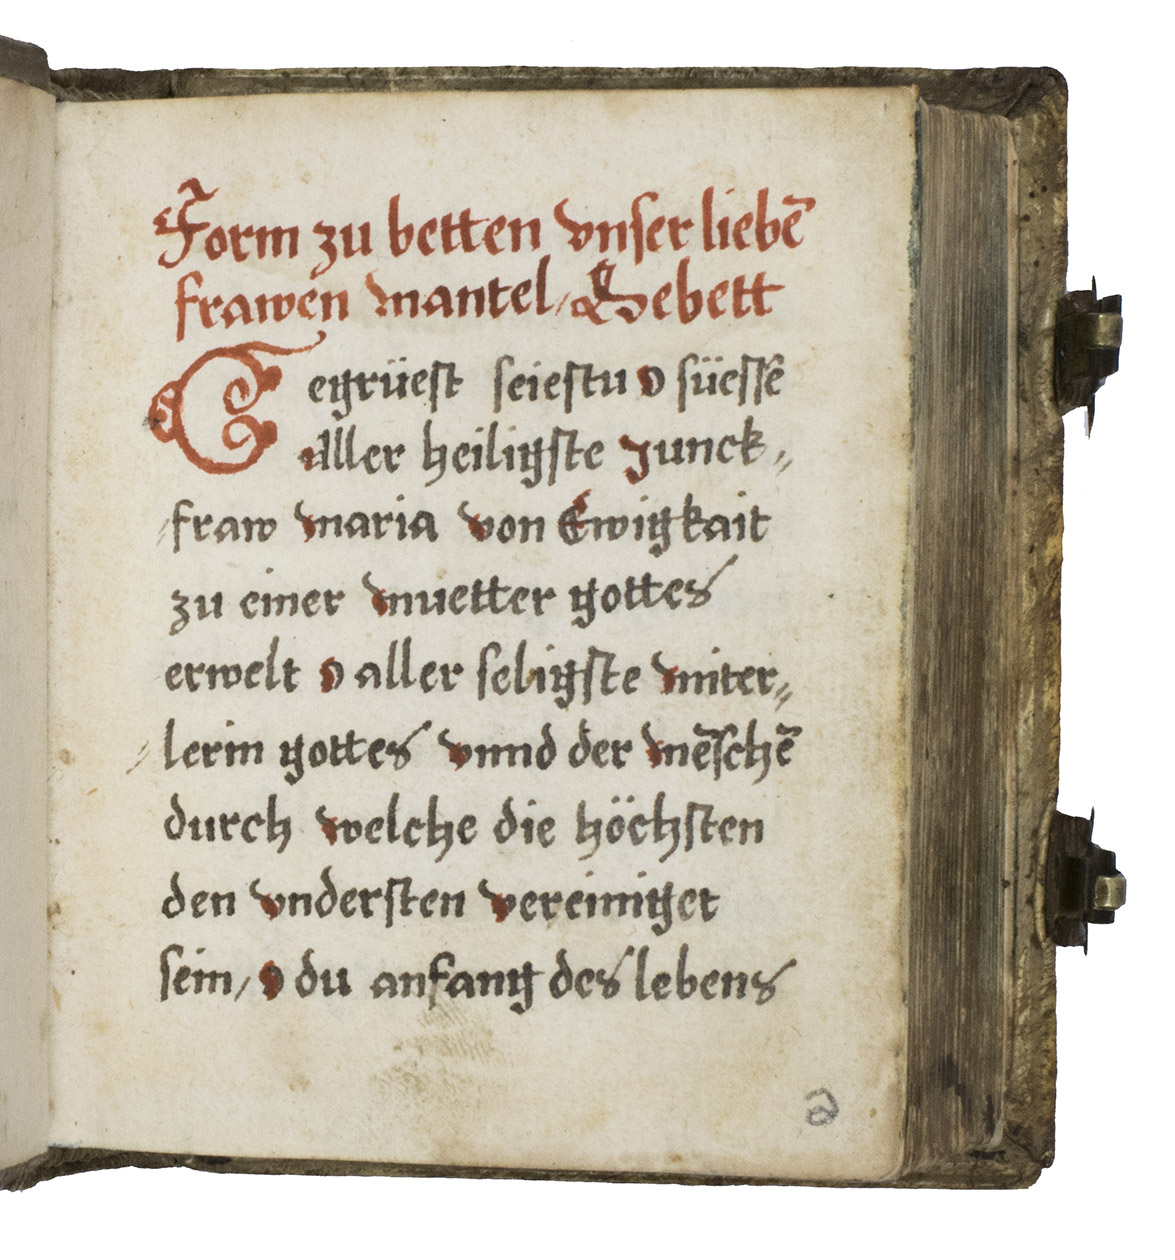 Form zu betten vnser liebē
frawen mantel / Gebett
Gegrüest seiestu o süessē
aller heiligste Junck„
fraw maria von Ewigkait
zu einer muetter gottes
erwelt o aller seligste miter„
lerin gottes vnnd der mēschē
durch welche die höchsten
den vndersten vereiniget
sein / o du anfang des lebens